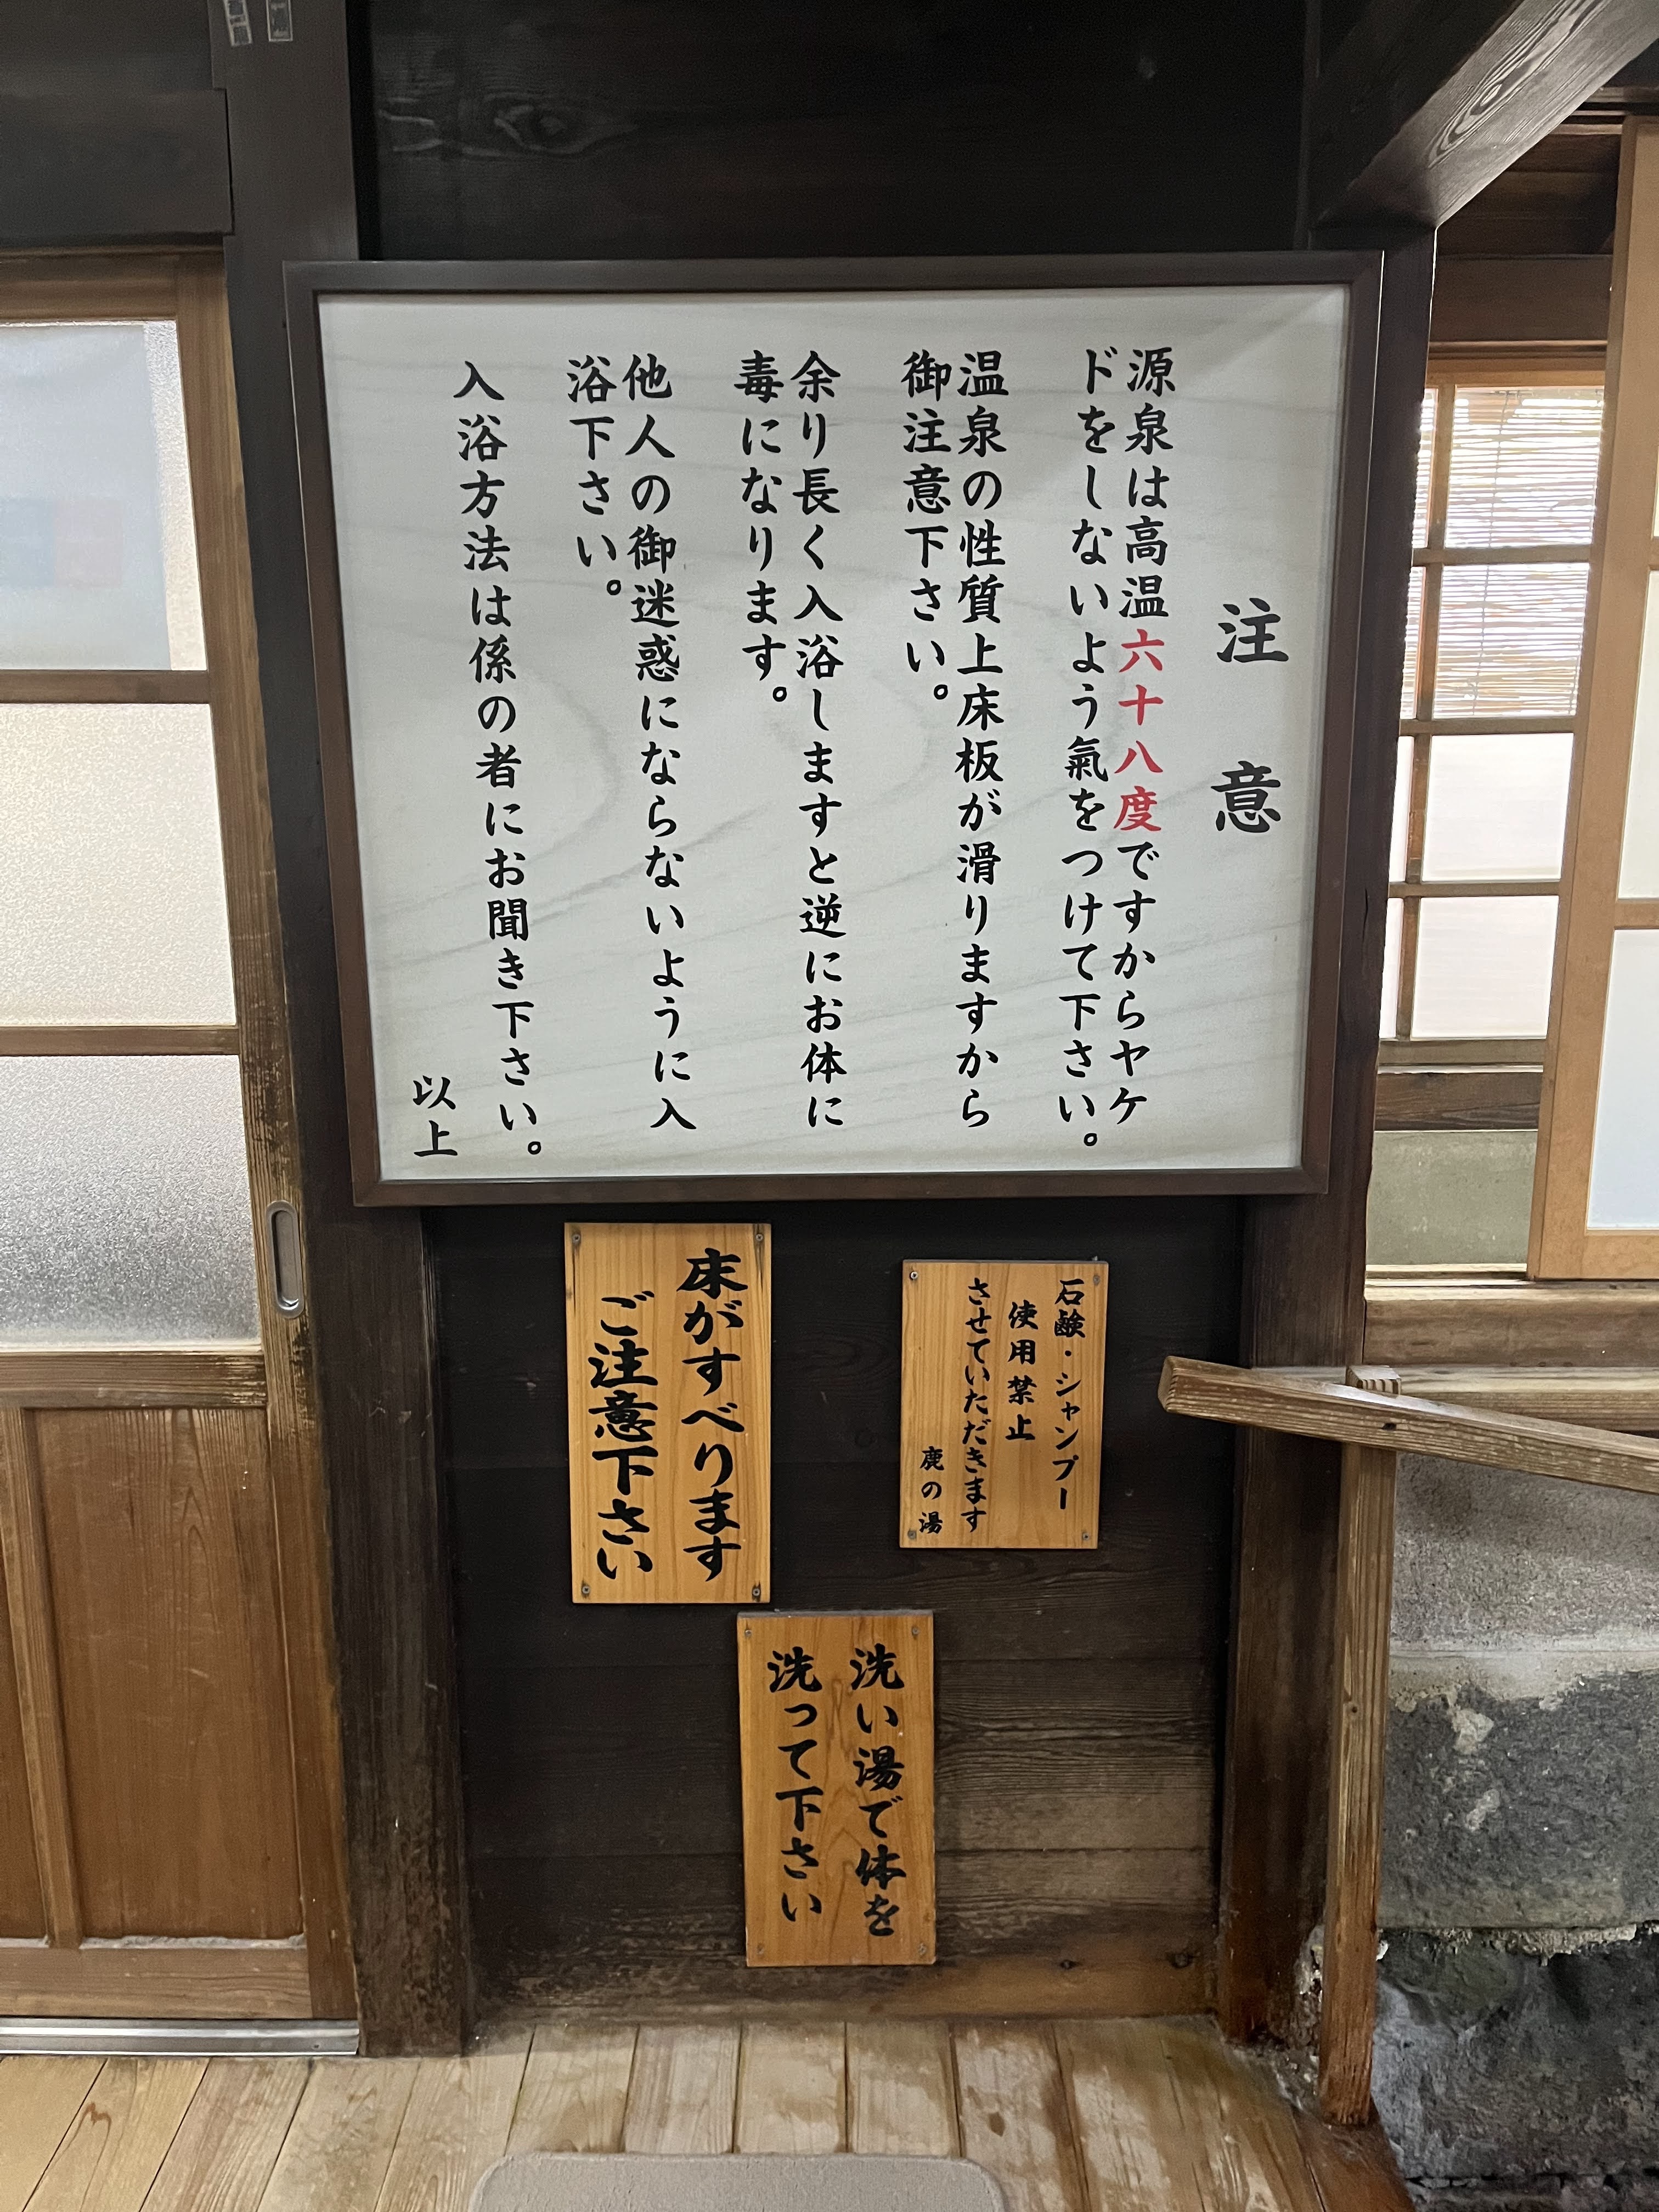 注意
源泉は高温六十八度ですからヤケ
ドをしないよう氣をつけて下さい。
温泉の性質上床板が滑りますから
御注意下さい。
余り長く入浴しますと逆にお体に
毒になります。
他人の御迷惑にならないように入
浴下さい。
入浴方法は係の者にお聞き下さい。
以上
石鹸・シャンプー
使用禁止
させていただきます
鹿の湯
床がすべります
ご注意下さい
洗い湯で体を
洗って下さい